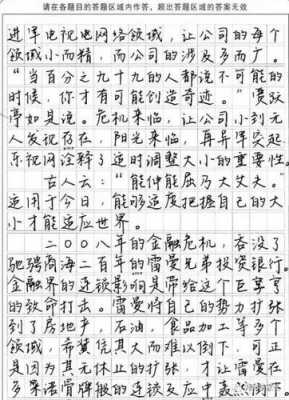 请在各题目的答题区域内作答，超出答题区域的答案无效
进军电视电网络领域，让公司的每个
领域小而精，而公司的涉及多而广。
“当百分之九十九的人都说不可能的
时候，你才有可能创造奇迹。”贾跃
亭如是说。危机来临，让公司小到无
人发现存在，阳光来临，再异军突起，
乐视网诠释了适时调整大小的重要性。
古人云：“能伸能屈乃大丈夫。”
适用于今日，能够适度把握自己的大
小才能适应世界。
二〇〇八年的金融危机，吞没了
驰骋商海二百年的雷曼兄弟投资银行。
金融界的连锁影响是带给这个巨掌
的致命打击。雷曼将自己的势力扩张
到了房地产，石油，食品加工等多个
领域，希冀凭其大而难以倒下，可正
是因为其无休止的扩张，才让雷曼在
多米诺骨牌般的连锁反应中轰然倒下。